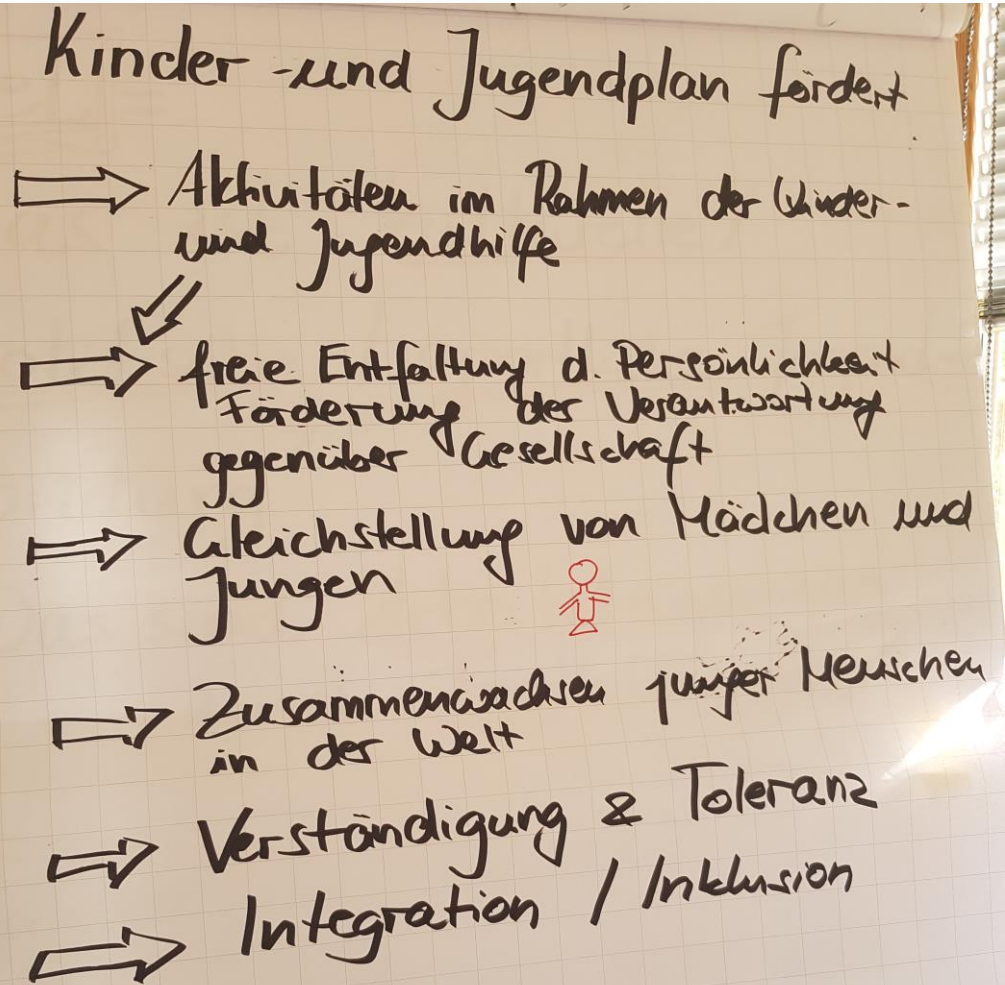 Kinder -und Jugendplan fördert
Aktivitäten im Rahmen der Kinder-
und Jugendhilfe
freie Entfaltung d. Persönlichkeit
Förderung der Verantwortung
gegenüber Gesellschaft
Gleichstellung von Mädchen und
Jungen
Zusammenwachsen junger Menschen
in der Welt
Verständigung & Toleranz
Integration / Inklusion